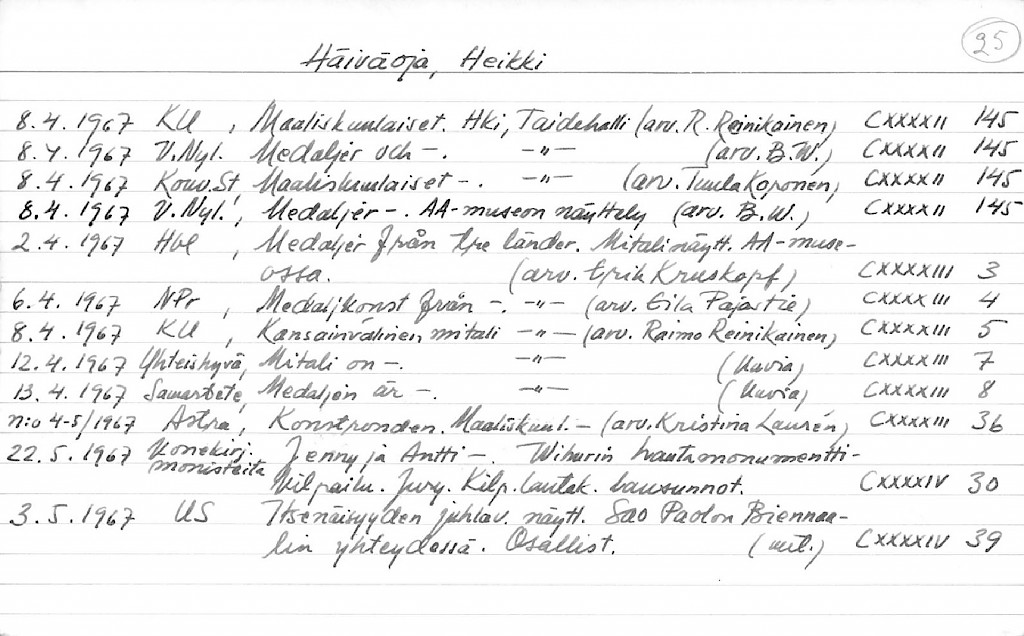 25
Häiväoja, Heikki
8.4.1967 KU, Maaliskuulaiset. Hki, Taidehalli (arv. R. Reinikainen) CXXXXII 145
8.4.1967 V.Nyl. Medaljer och -. -"- (arv. B.W.) CXXXXII 145
8.4.1967 Kouv.St, Maaliskuulaiset -. -"- (arv. Tuula Koponen) CXXXXII 145
8.4.1967 V.Nyl., Medaljer -. AA-museon näyttely (arv. B.W.) CXXXXII 145
2.4.1967 Hbl, Medaljer från tre länder. Mitalinäytt. AA-muse-
ossa. (arv. Erik Kruskopf) CXXXXIII 3
6.4.1967 NPr, Medaljkonst från -. -"- (arv. Eila Pajastie) CXXXXIII 4
8.4.1967 KU, Kansainvälinen mitali -"- (arv. Raimo Reinikainen) CXXXXIII 5
12.4.1967 Yhteishyvä, Mitali on -. -"- (kuvia) CXXXXIII 7
13.4.1967 Samarbete, Medaljen är -. -"- (kuvia) CXXXXIII 8
n:o 4-5/1967 Astra, Konstronden. Maaliskuul. - (arv. Kristina Laurén) CXXXXIII 36
22.5.1967 Konekirj. Jenny ja Antti -. Wihurin hautamonumentti-
monisteita kilpailu. Jury. Kilp. lautak. lausunnot. CXXXXIV 30
3.5.1967 US Itsenäisyyden juhlav. näytt. Sao Paolon Biennaa-
lin yhteydessä. Osallist. (mit.) CXXXXIV 39